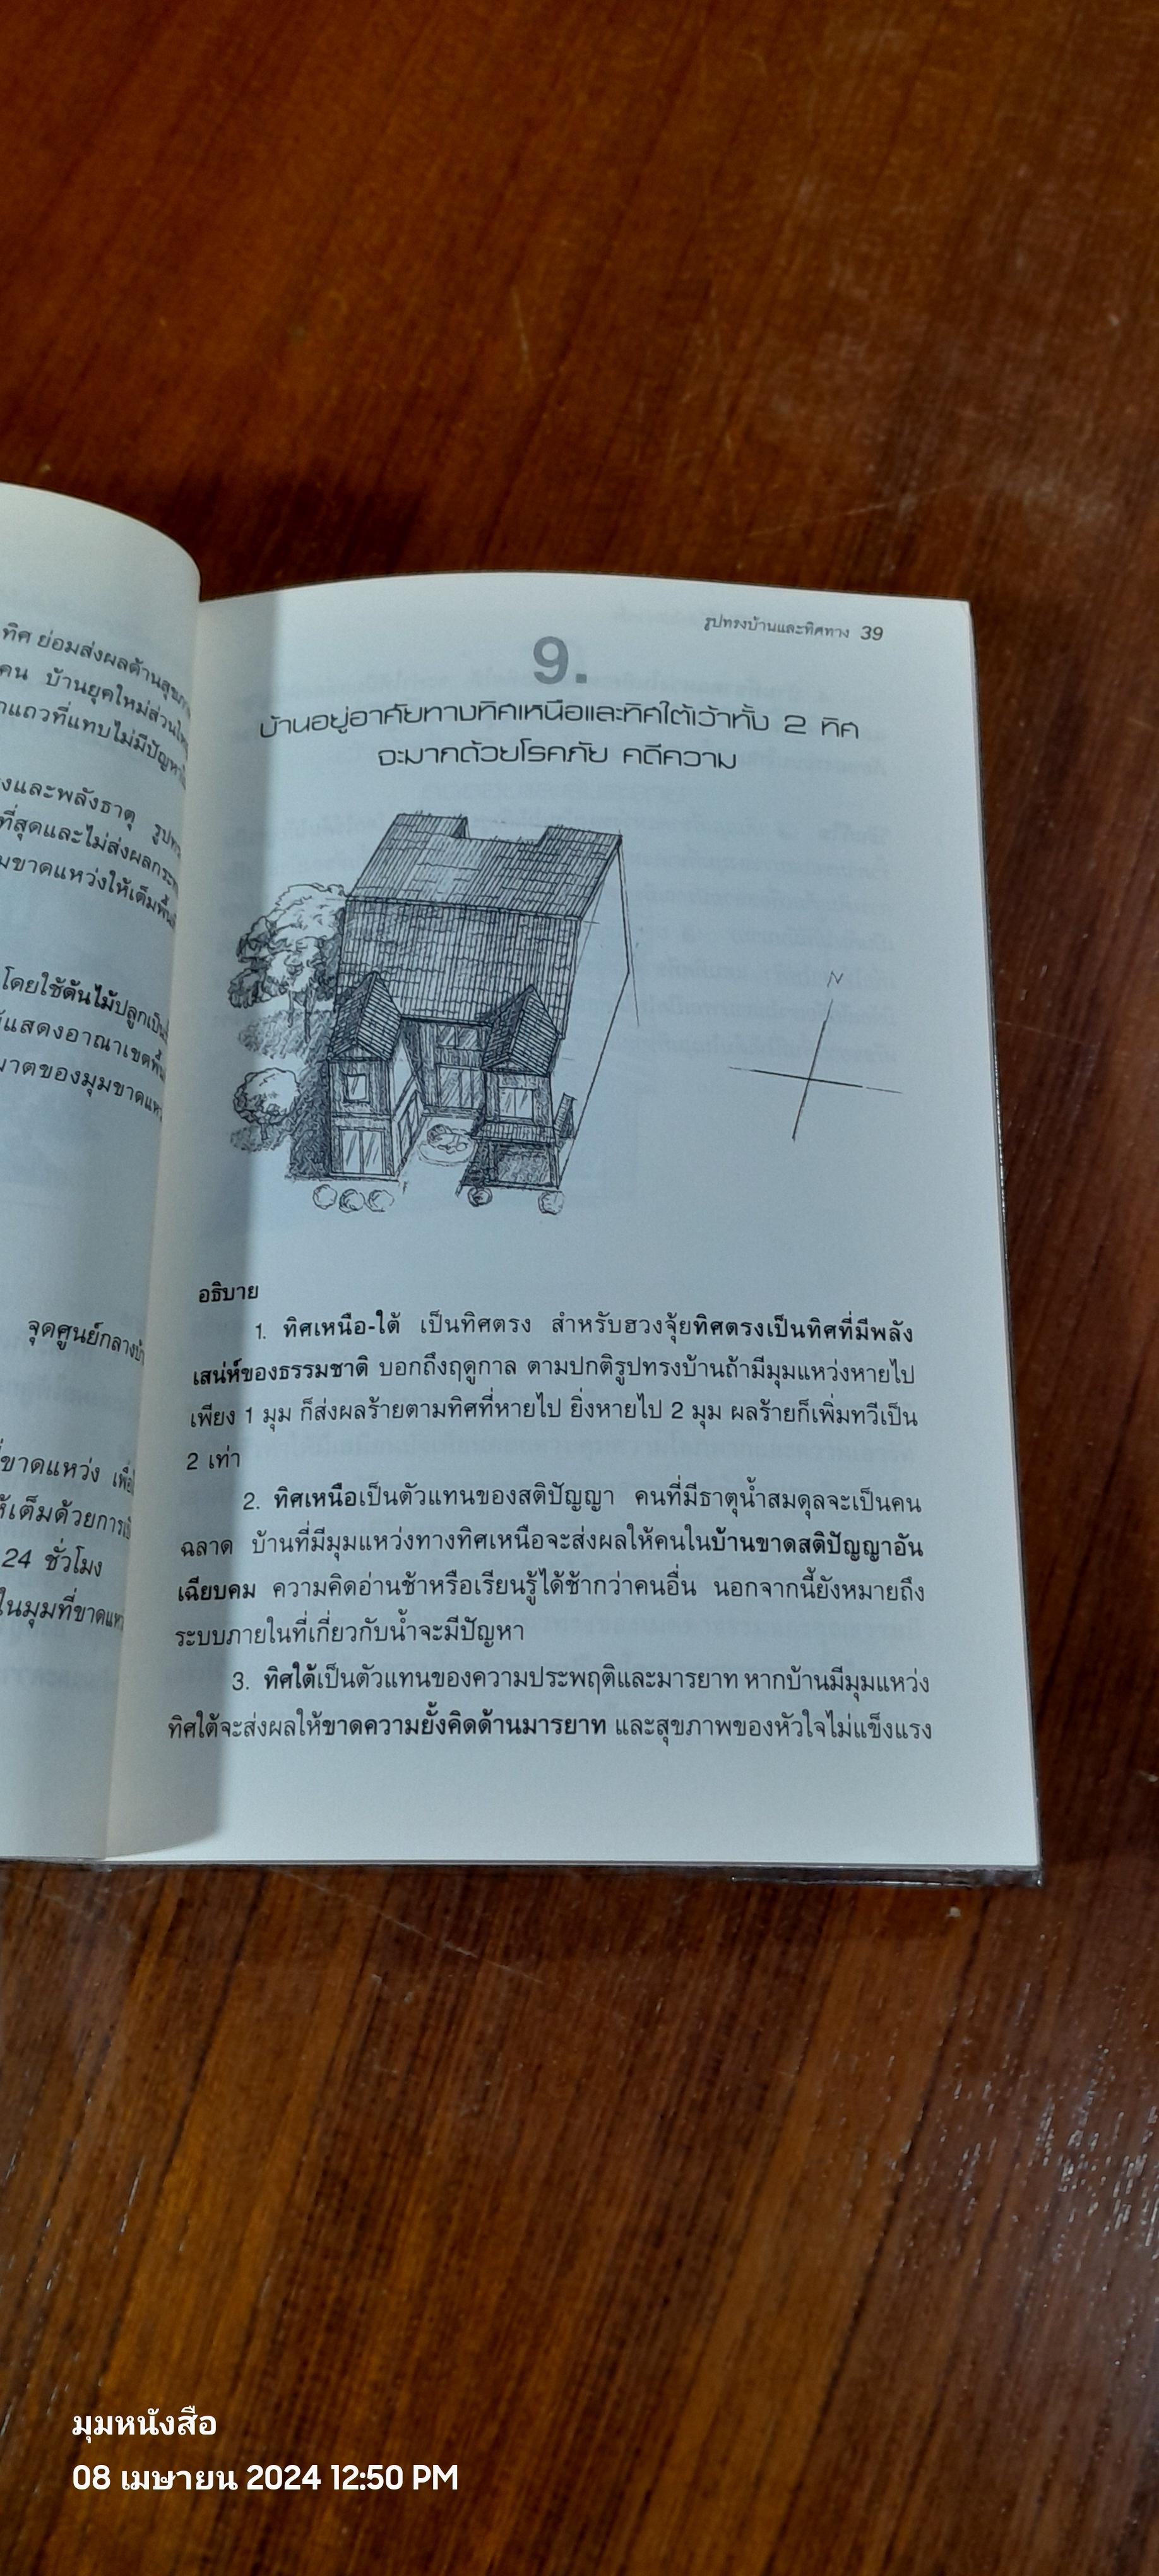 ทิศ ย่อมส่งผลด้านสุขภาพ
คน บ้านยุคใหม่ส่วนใหญ่
แถวที่แทบไม่มีปัญหา
และพลังธาตุ
ที่สุดและไม่ส่งผล
ขาดแหว่งให้เต็มพื้นที่
โดยใช้ต้นไม้ปลูกเป็น
แสดงอาณาเขตพื้น
ของมุมขาดแหว่ง
จุดศูนย์กลางบ้าน
ขาดแหว่ง
ให้เต็มด้วยการ
24 ชั่วโมง
ในมุมที่ขาดแหว่ง
รูปทรงบ้านและทิศทาง 39
9.
บ้านอยู่อาศัยทางทิศเหนือและทิศใต้เว้าทั้ง 2 ทิศ
จะมากด้วยโรคภัย คดีความ
N
อธิบาย
1. ทิศเหนือ-ใต้ เป็นทิศตรง สำหรับฮวงจุ้ยทิศตรงเป็นทิศที่มีพลัง
เสน่ห์ของธรรมชาติ บอกถึงฤดูกาล ตามปกติรูปทรงบ้านถ้ามีมุมแหว่งหายไป
เพียง 1 มุม ก็ส่งผลร้ายตามทิศที่หายไป ยิ่งหายไป 2 มุม ผลร้ายก็เพิ่มทวีเป็น
2 เท่า
2. ทิศเหนือเป็นตัวแทนของสติปัญญา คนที่มีธาตุน้ำสมดุลจะเป็นคน
ฉลาด บ้านที่มีมุมแหว่งทางทิศเหนือจะส่งผลให้คนในบ้านขาดสติปัญญาอัน
เฉียบคม ความคิดอ่านช้าหรือเรียนรู้ได้ช้ากว่าคนอื่น นอกจากนี้ยังหมายถึง
ระบบภายในที่เกี่ยวกับน้ำจะมีปัญหา
3. ทิศใต้เป็นตัวแทนของความประพฤติและมารยาท หากบ้านมีมุมแหว่ง
ทิศใต้จะส่งผลให้ขาดความยั้งคิดด้านมารยาท และสุขภาพของหัวใจไม่แข็งแรง
มุมหนังสือ
08 เมษายน 2024 12:50 PM